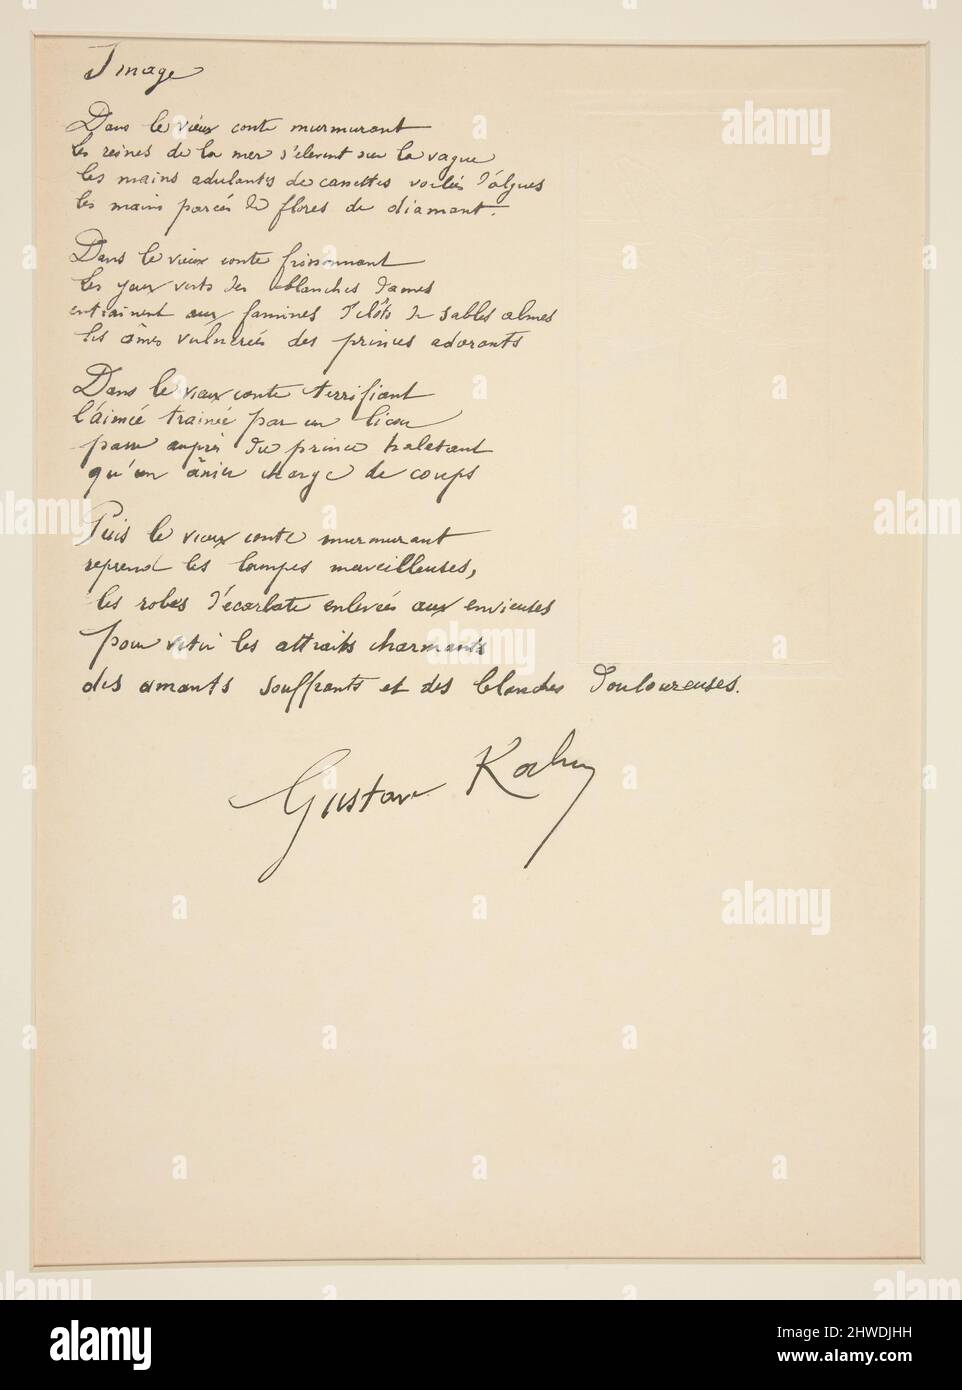 Image
Dans le vieux conte murmurant
les reines de la mer s'elevent sur la vague
les mains adulantes de canettes voilées d'algues
les mains parées de flores de diamant.
Dans le vieux conte frissonnant
les yeux verts des blanches dames
entrainent aux famines d'ilôts de sables almes
les âmes vulnerées des princes adorants
Dans le vieux conte terrifiant
l'aimée trainée par un licou
passe auprès du prince haletant
qu'un ânier charge de coups
Puis le vieux conte murmurant
reprend les lampes merveilleuses,
les robes d'écarlate enlevées aux envieuses
pour vetir les attraits charmants
des amants souffrants et des blanches douloureuses.
Gustave Kahn
alamy
alamy
alamy
alamy
alamy
alamy
Image ID: 2HWDJHH
www.alamy.com